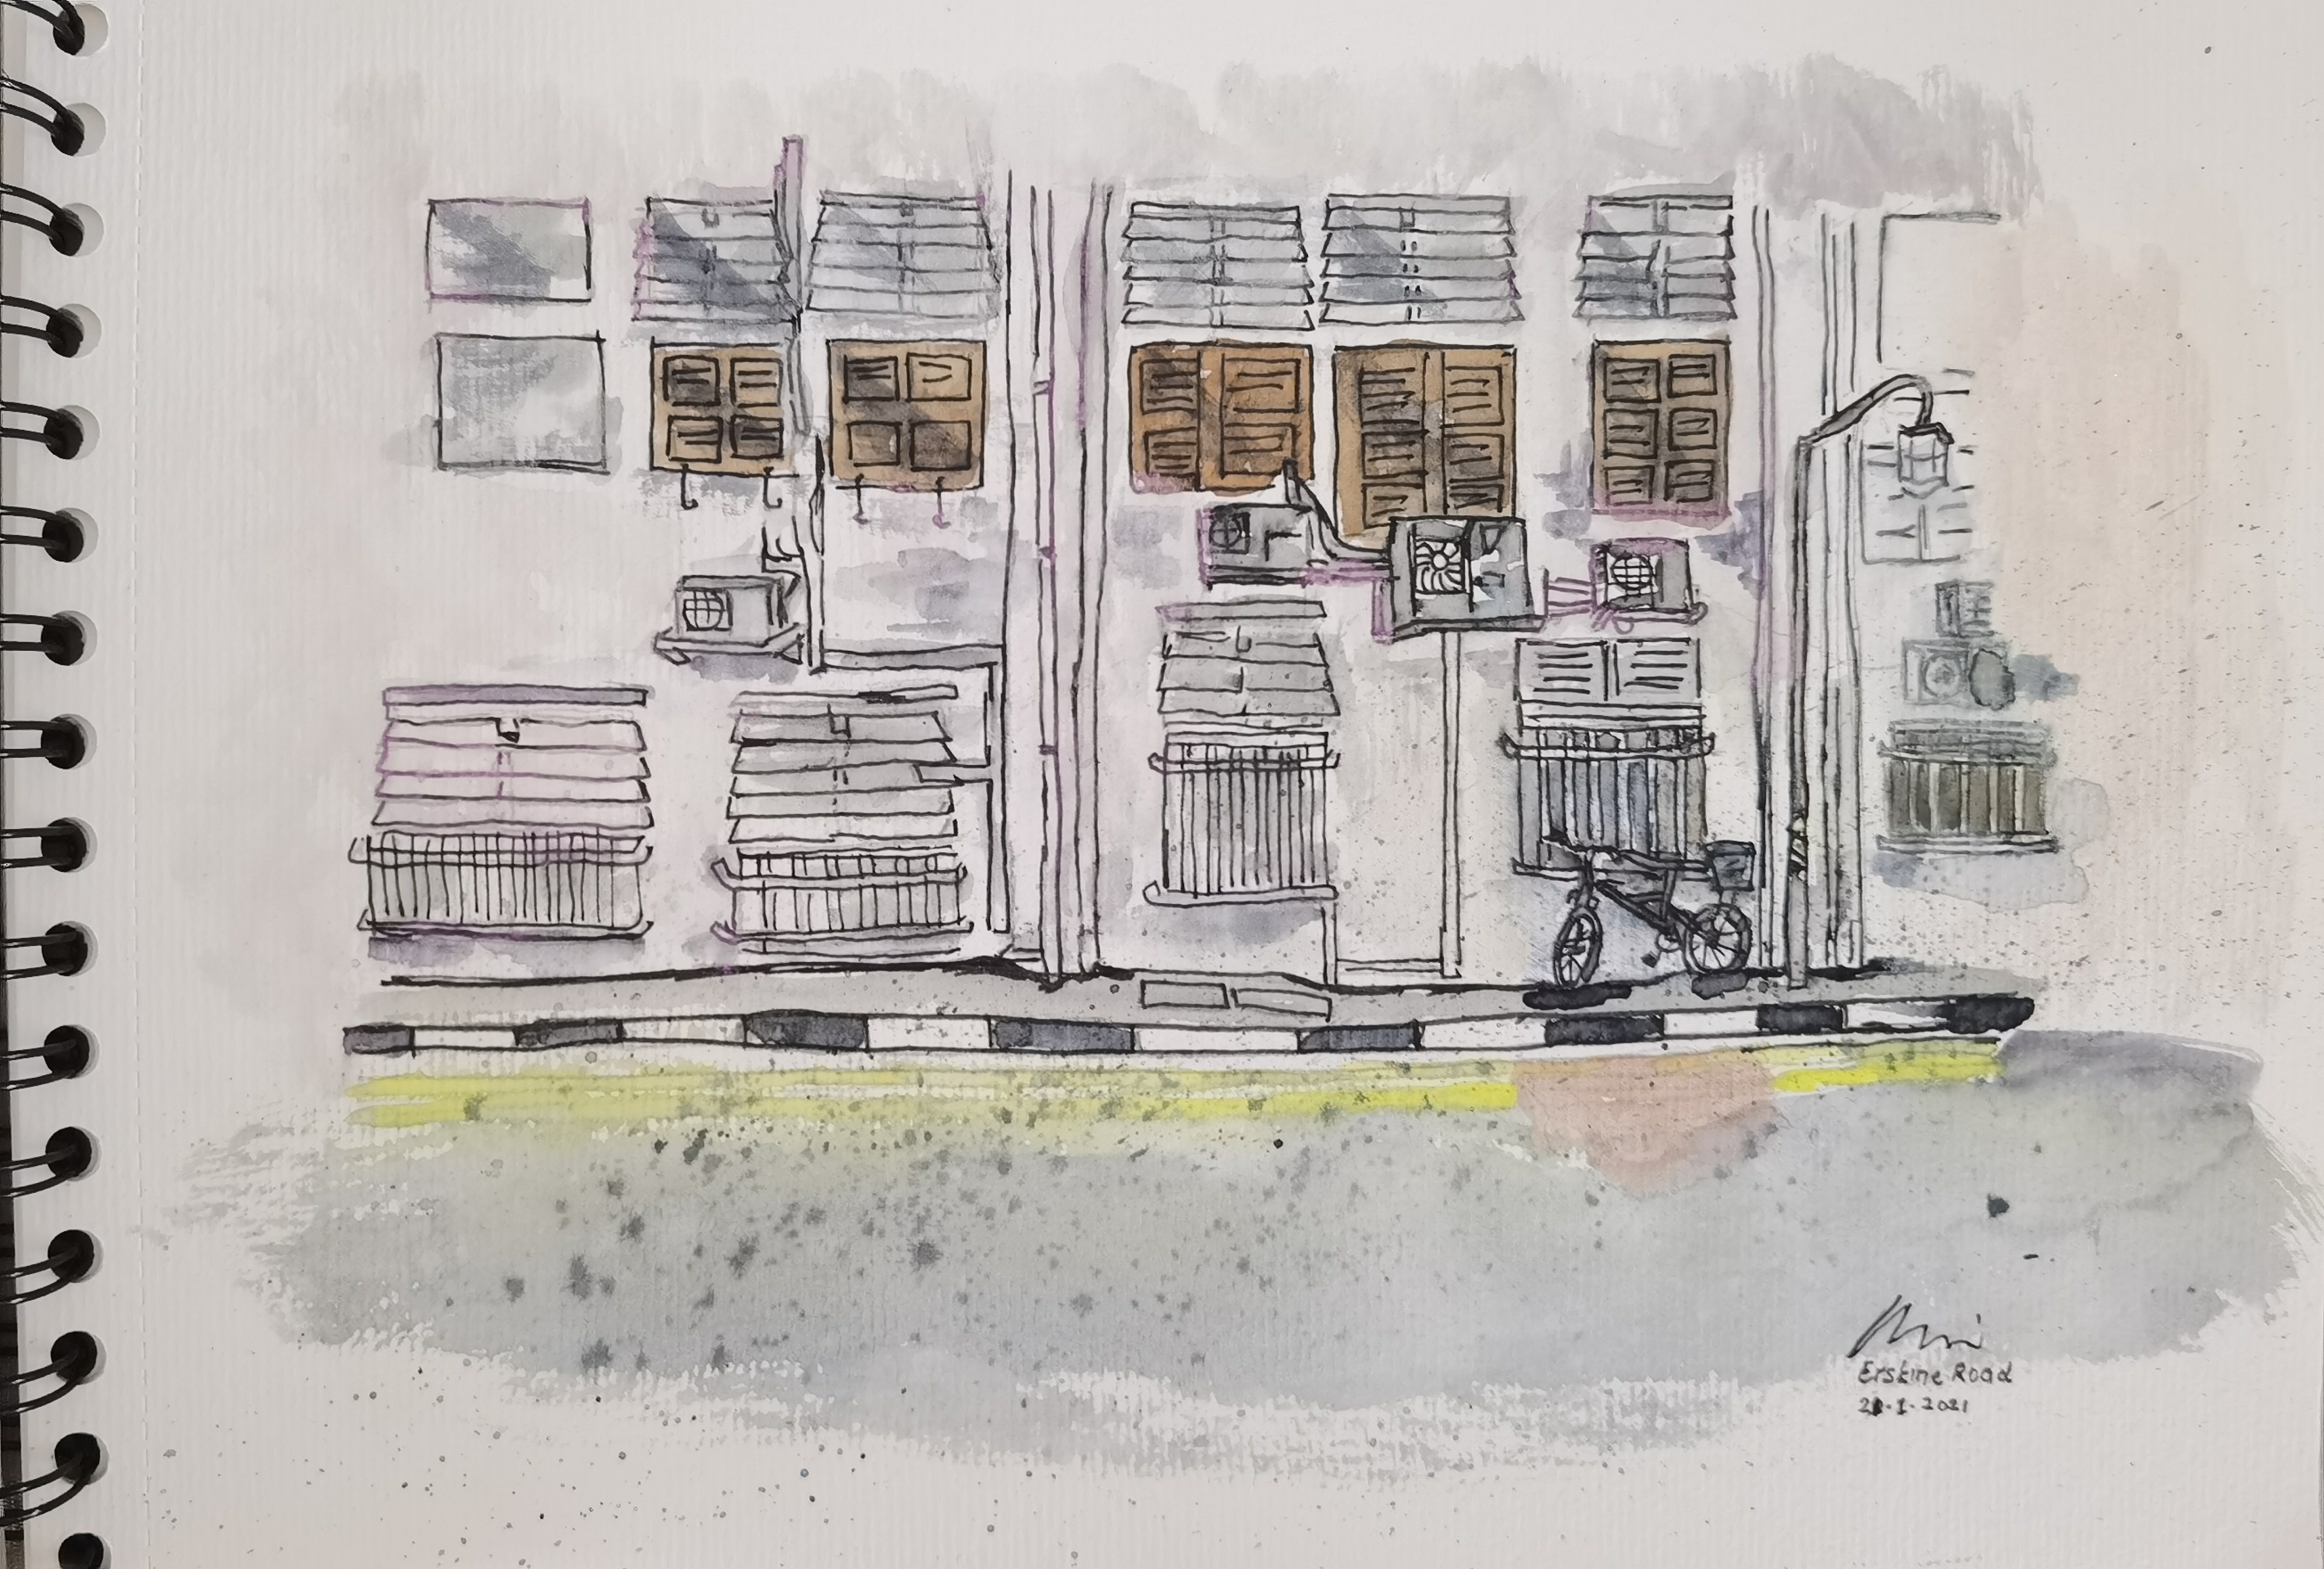 Erskine Road
21.1.2021